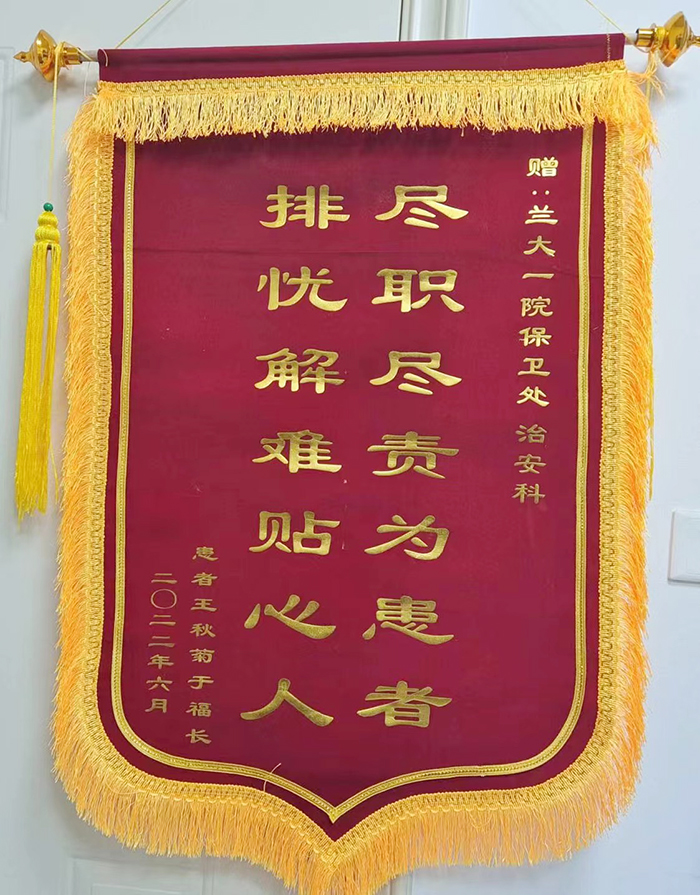 赠:兰大一院保卫处 治安科
尽职尽责为患者
排忧解难贴心人
患者王秋菊于福长
二〇二二年六月